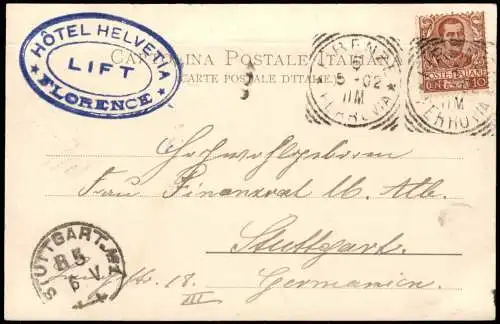 HÔTEL HELVETIA
LIFT
FLORENCE
CARTOLINA POSTALE ITALIANA
(CARTE POSTALE D'ITALIE)
FIRENZE
5-02
11M
FERROVIA
POSTE ITALIANE
CEN. 10
11M
FERROVIA
Hochwohlgeboren
Frau Finanzrat M. Alb.
Stuttgart.
18. Germanien.
III
STUTTGART
6 V